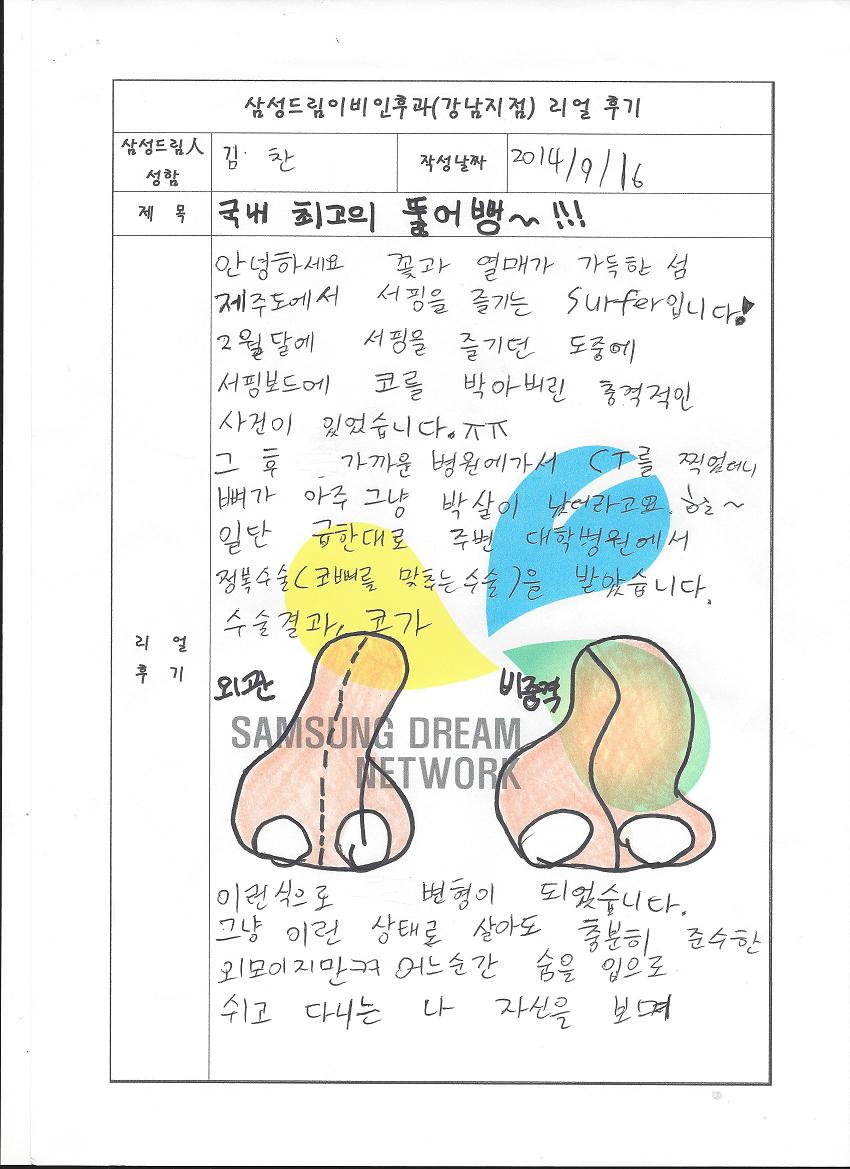 삼성드림이비인후과(강남지점) 리얼 후기
삼성드림人
성함
김 찬
작성날짜
2014/9/16
제 목
국내 최고의 뚫어뻥~!!!
안녕하세요 꽃과 열매가 가득한 섬
제주도에서 서핑을 즐기는 Surfer입니다!
2월달에 서핑을 즐기던 도중에
서핑보드에 코를 박아버린 충격적인
사건이 있었습니다.ㅠㅠ
그 후 가까운 병원에가서 CT를 찍었더니
뼈가 아주 그냥 박살이 났더라고요. 헐~
일단 급한대로 주변 대학병원에서
정복수술(코뼈를 맞추는 수술)을 받았습니다.
수술결과, 코가
외관
비중격
SAMSUNG DREAM
NETWORK
이런식으로 변형이 되었습니다.
그냥 이런 상태로 살아도 충분히 준수한
외모이지만ㅋㅋ 어느순간 숨을 입으로
쉬고 다니는 나 자신을 보며
리 얼
후 기